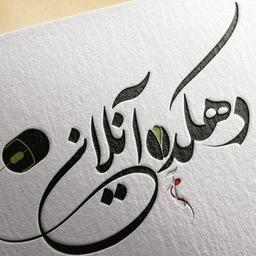 دهکده آنلاین